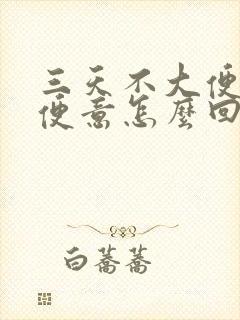 三天不大便
便意怎麼回
白蕎蕎